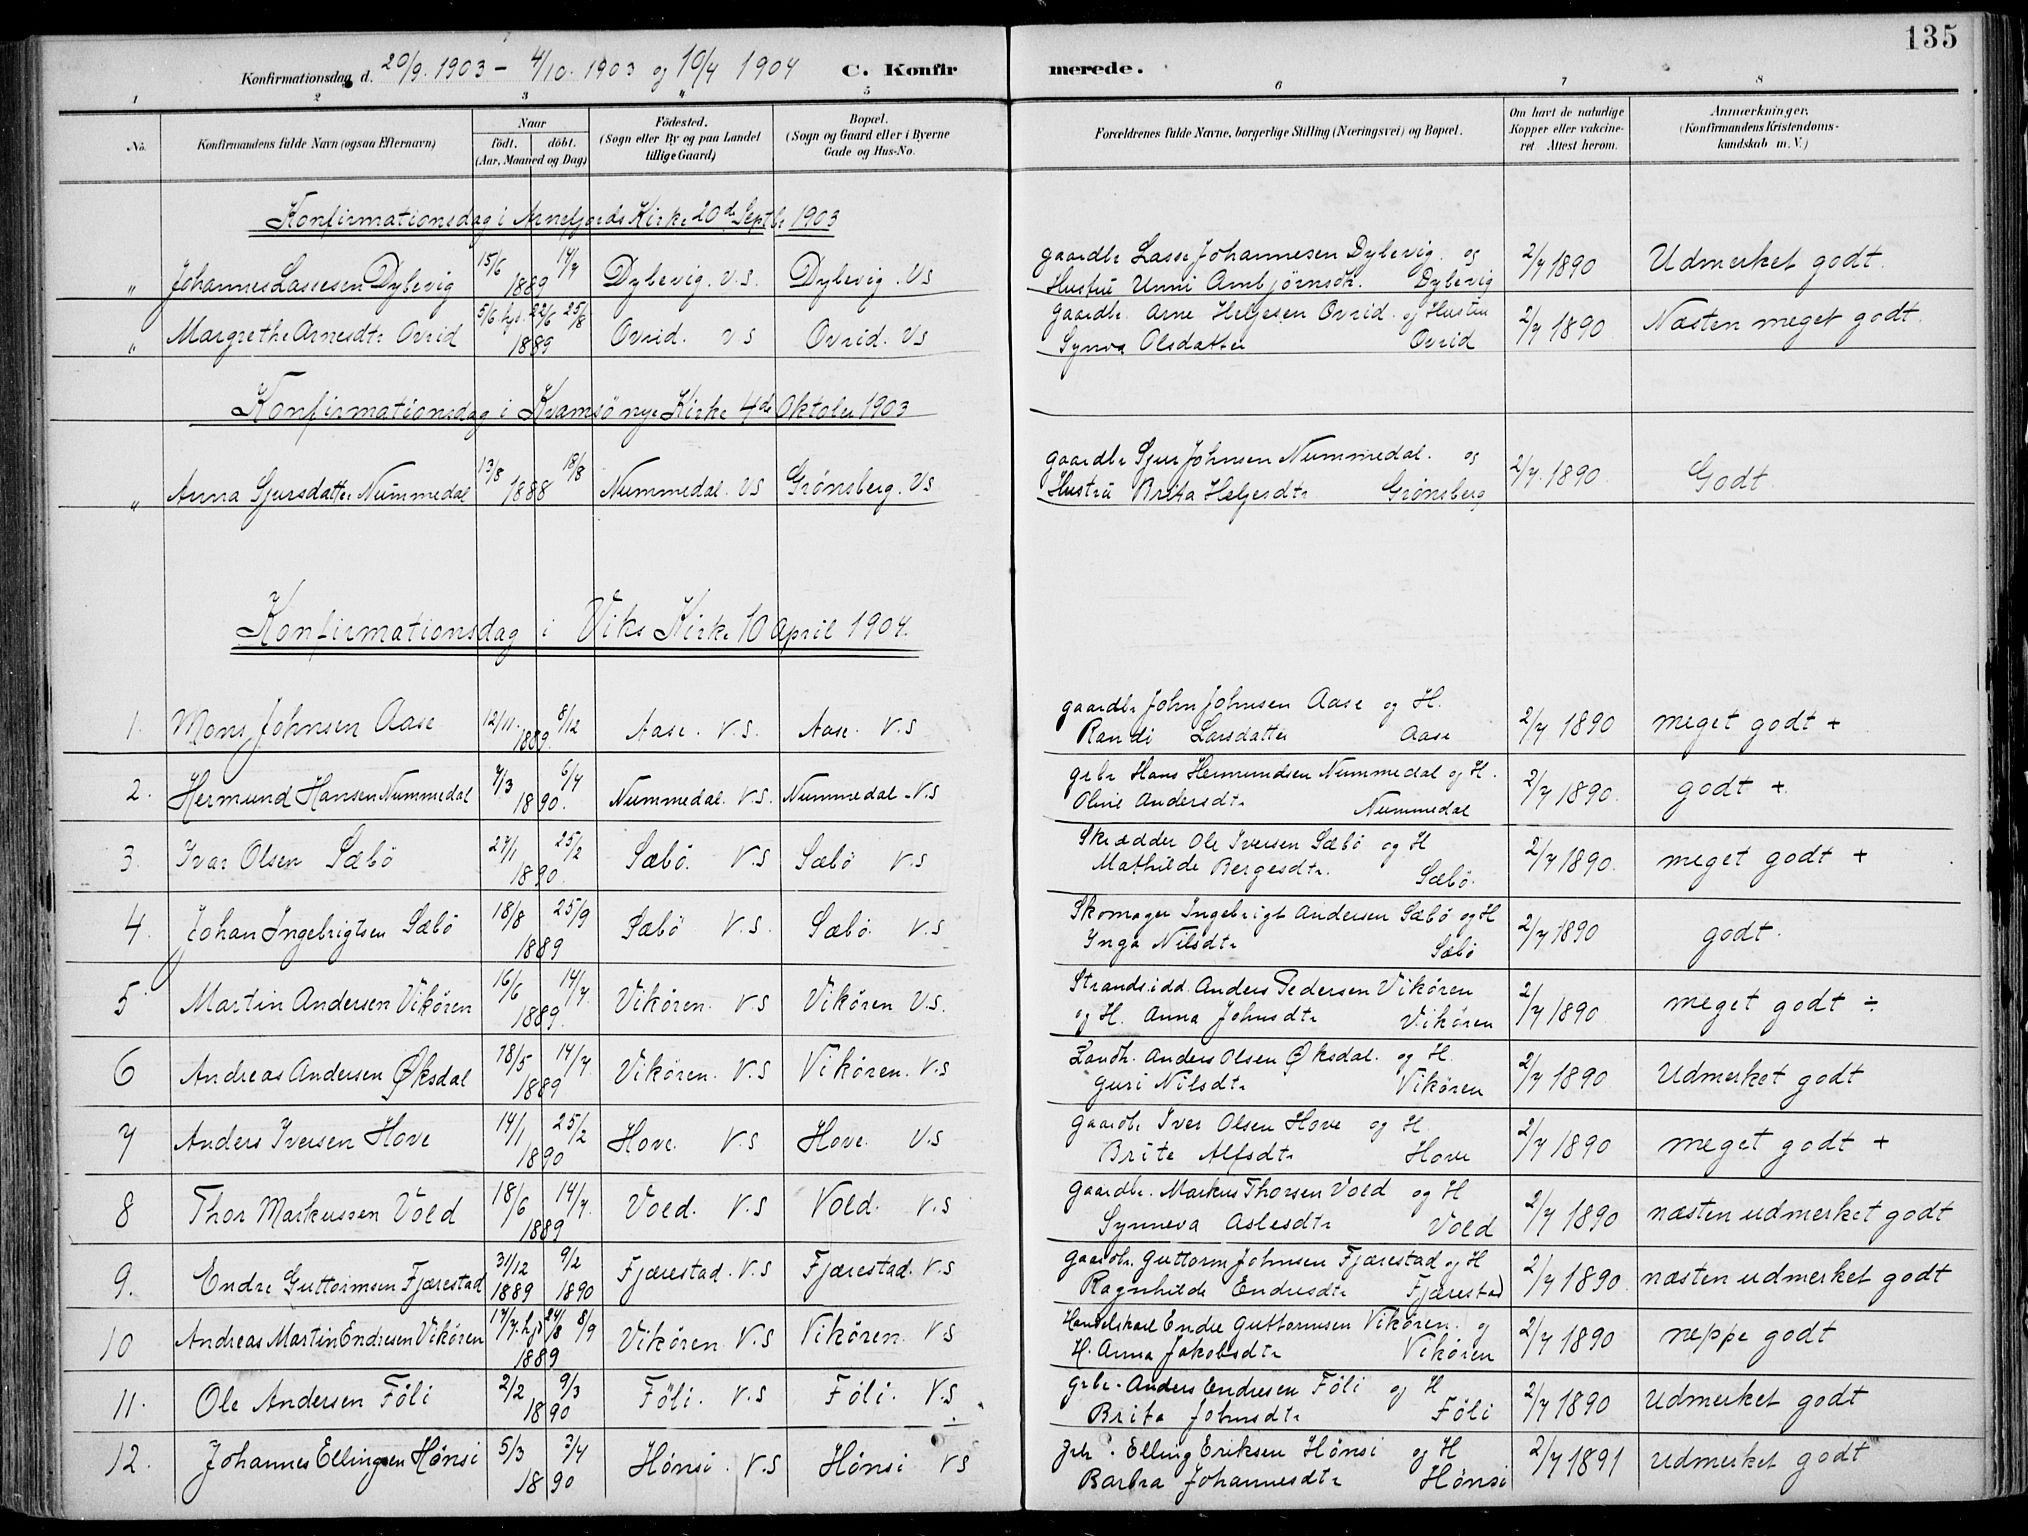 135
Konfirmationsdag d. 20/9. 1903 – 4/10. 1903 og 10/4 1904 C. Konfirmerede.
1 2 3 4 5 6 7 8
No. Konfirmandens fulde Navn (ogsaa Efternavn) Naar födt. döbt. (Aar, Maaned og Dag) Födested. (Sogn eller By og paa Landet tillige Gaard) Bopæl. (Sogn og Gaard eller i Byerne Gade og Hus-No. Forældrenes fulde Navne, borgerlige Stilling (Næringsvei) og Bopæl. Om havt de naturlige Kopper eller vakcineret Attest herom. Anmærkninger. (Konfirmandens Kristendomskundskab m. V.)
Konfirmationsdag i Arnefjords Kirke 20de Septbr 1903
" Johannes Lassesen Dylevig 15/6 14/7 1889 Dylevig. V.S. Dylevig. VS gaardbr Lasse Johannesen Dylevig. og Hustru Unni Ambjørnsdtr. Dylevig 2/7 1890 Udmerket godt.
" Margrethe Arnesdtr Ovrid 5/6. hjd. 22/6 25/8 1889 Ovrid. VS Ovrid. VS gaardbr. Arne Helgesen Ovrid. og Hustru Synva Olsdatter Ovrid 2/7 1890 Næsten meget godt.
Konfirmationsdag i Kvamsö nye Kirke 4de Oktober 1903
" Anna Sjursdatter Nummedal 13/8 18/8 1888 Nummedal. VS Grønsberg. VS gaardbr Sjur Johnsen Nummedal. og Hustru Brita Helgesdtr Grønsberg 2/7. 1890. Godt.
Konfirmationsdag i Viks Kirke 10 April 1904.
1. Mons Johnsen Aase 12/11. 8/12 1889. Aase. V.S Aase. V.S gaardbr John Johnsen Aase og H. Randi Larsdatter Aase 2/7 1890 meget godt +
2. Hermund Hansen Nummedal 7/3 6/4 1890. Nummedal. V.S. Nummedal. V.S grbr Hans Hermundsen Nummedal og H. Oline Andersdtr Nummedal 2/7 1890. godt +
3. Ivar Olsen Sæbö 27/1 25/2 1890. Sæbö. V.S Sæbö V.S Skrædder Ole Iversen Sæbö og H Mathilde Bergesdtr. Sæbö. 2/7 1890. meget godt +
4. Johan Ingebrigtsen Sæbö 18/8 25/9 1889 Sæbö V.S. Sæbö. V.S Skomager Ingebrigt Andersen Sæbö og H Inga Nilsdtr Sæbö 2/7 1890 godt.
5 Martin Andersen Vikören 16/6 14/7. 1889. Vikören. V.S Vikören V.S. Strandsidd. Anders Pedersen Vikören og H. Anna Johnsdtr Vikören 2/7 1890. meget godt ÷
6 Andreas Andersen Øksdal 18/5 14/7. 1889 Vikören. V.S Vikören. V.S Landh. Anders Olsen Øksdal. og H. Guri Nilsdtr Vikören 2/7 1890 Udmerket godt
7 Anders Iversen Hove 14/1 25/2 1890 Hove. V.S Hove. V.S gaardbr Iver Olsen Hove og H. Brite Alfsdtr Hove 2/7 1890 meget godt +
8 Thor Markussen Vold 18/6 14/7. 1889 Vold. V.S Vold. V.S gaardbr. Markus Thorsen Vold og H Synneva Aslesdtr Vold 2/7 1890 næsten udmerket godt
9. Endre Guttormsen Fjærestad 31/12 1889 9/2 1890 Fjærestad. V.S Fjærestad. V.S gaardbr. Guttorm Johnsen Fjærestad og H Ragnhilde Endresdtr Fjærestad 2/7 1890. næsten udmerket godt
10 Andreas Martin Endresen Vikören 17/7. hjd 24/8 8/9 1889 Vikören V.S Vikören. V.S Handelskarl Endre Guttormsen Vikören. og H. Anna Jakobsdtr Vikören 2/7 1890 neppe godt
11. Ole Andersen Föli 2/2 9/3 1890 Föli. V.S Föli. V.S grbr. Anders Endresen Föli og H Brita Johnsdtr Föli 2/7 1890 Udmerket godt
12. Johannes Ellingsen Hønsi 5/3 7/4 1890 Hønsi. V.S Hønsi V.S grbr. Elling Eriksen Hønsi og H Barbra Johannesdtr Hønsi 2/7 1891 udmerket godt